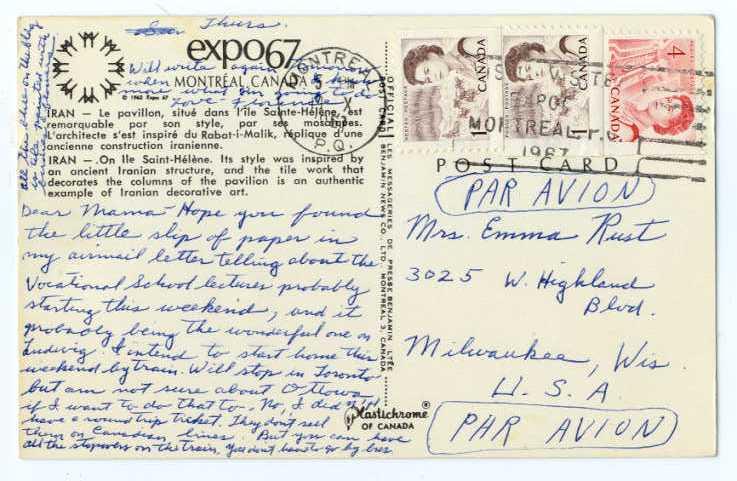 Thurs.
Will write again
when I know
more what I'm going to do
Love - Florence
all the blue on the bldg
expo67
MONTRÉAL, CANADA
© 1963 Expo 67
IRAN — Le pavillon, situé dans l'île Sainte-Hélène, est
remarquable par son style, par ses mosaïques.
L'architecte s'est inspiré du Rabat-i-Malik, réplique d'une
ancienne construction iranienne.
IRAN — On Ile Saint-Hélène. Its style was inspired by
an ancient Iranian structure, and the tile work that
decorates the columns of the pavilion is an authentic
example of Iranian decorative art.
Dear Mama - Hope you found
the little slip of paper in
my airmail letter telling about the
Vocational School lectures probably
starting this weekend, and it
probably being the wonderful one on
Ludwig. I intend to start home this
weekend by train. Will stop in Toronto
but am not sure about Ottowa
if I want to do that to. No, I did not
have a round trip ticket. They don't sell
them on Canadian lines. But you can have
all the stopovers on the train. You don't have to go by bus.
OFFICIAL POST CARD
LES MESSAGERIES DE PRESSE BENJAMIN LTÉE
BENJAMIN NEWS CO. LTD. MONTREAL 3, CANADA
Plastichrome®
OF CANADA
MONTREAL
P.Q.
MONTREAL P.Q.
1967
CANADA
1
CANADA
1
CANADA
4
POST CARD
PAR AVION
Mrs. Emma Rust
3025 W. Highland
Blvd.
Milwaukee, Wis.
U.S.A.
PAR AVION